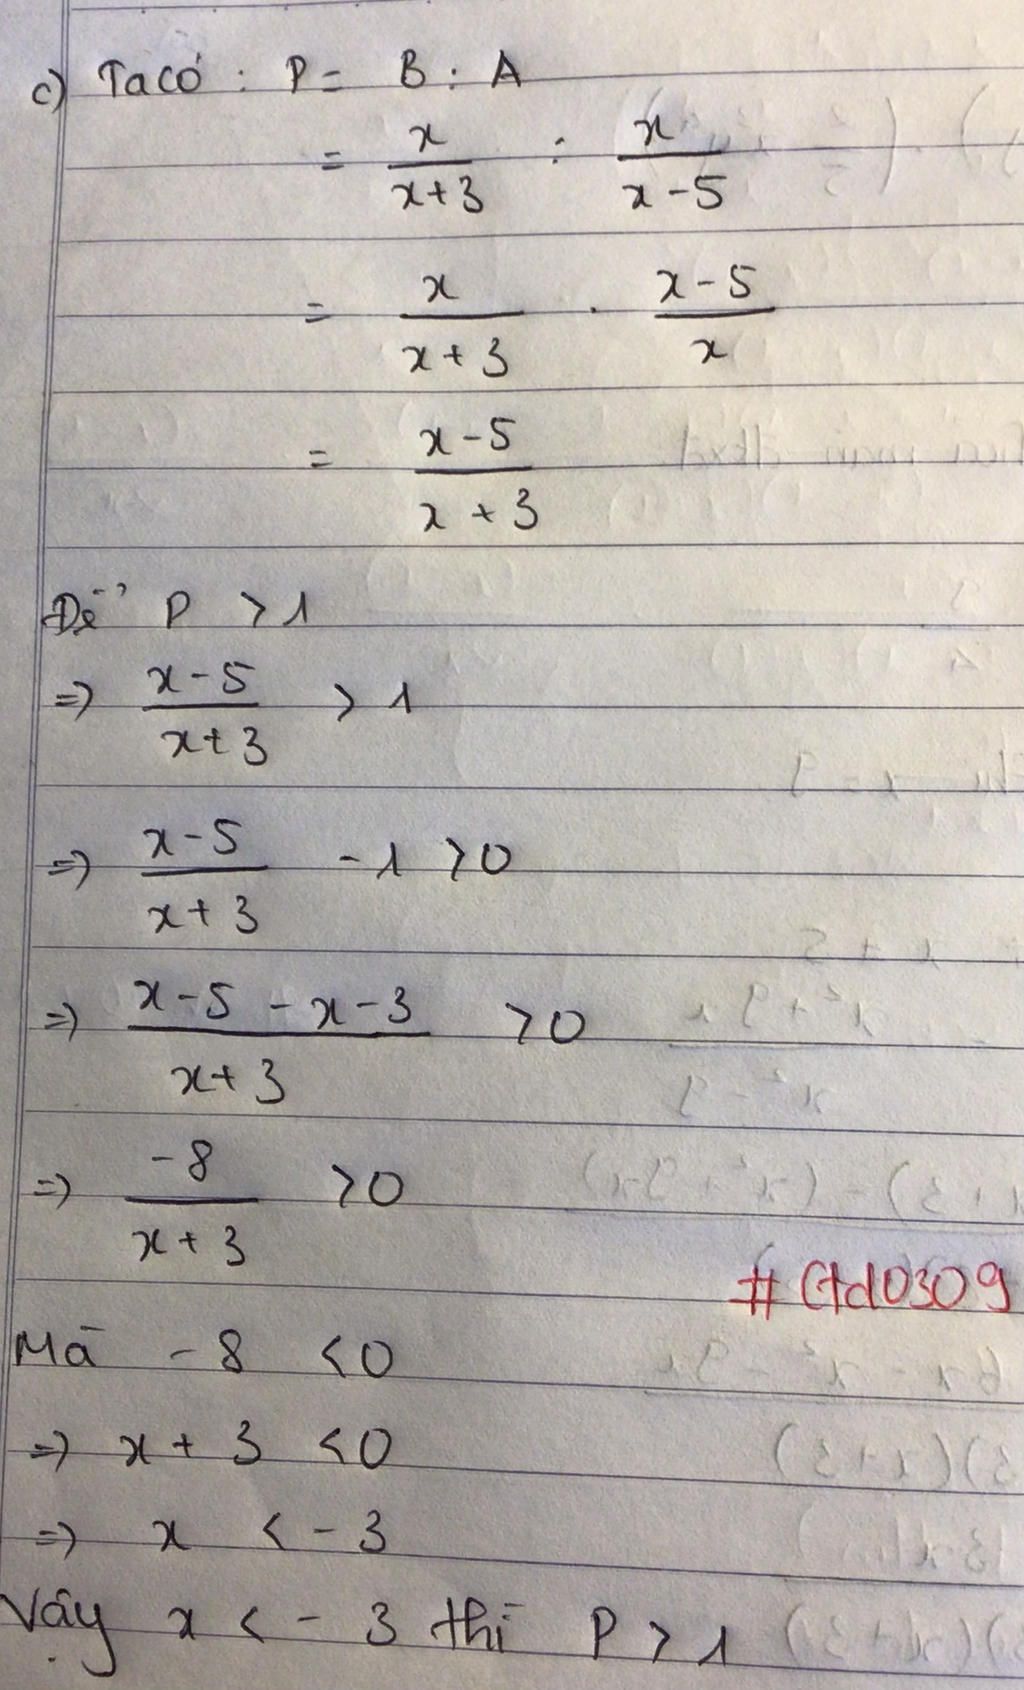 c) Ta có : P = B : A
= x/(x+3) : x/(x-5)
= x/(x+3) . (x-5)/x
= (x-5)/(x+3)
Để P > 1
=> (x-5)/(x+3) > 1
=> (x-5)/(x+3) - 1 > 0
=> (x-5-x-3)/(x+3) > 0
=> -8/(x+3) > 0
#Ctd0309
Mà -8 < 0
=> x + 3 < 0
=> x < -3
Vậy x < -3 thì P > 1